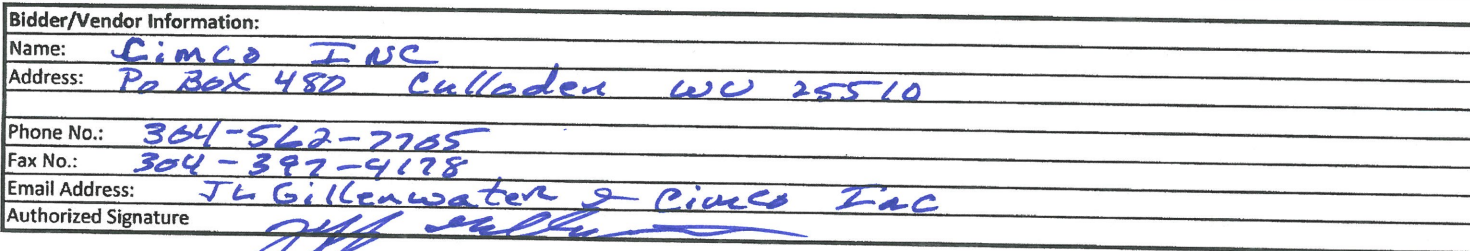 Bidder/Vendor Information:
Name: Cimco INC
Address: Po Box 480 Culloden WV 25510
Phone No.: 304-562-7765
Fax No.: 304-397-4178
Email Address: JL Gillenwater Cimco Inc
Authorized Signature